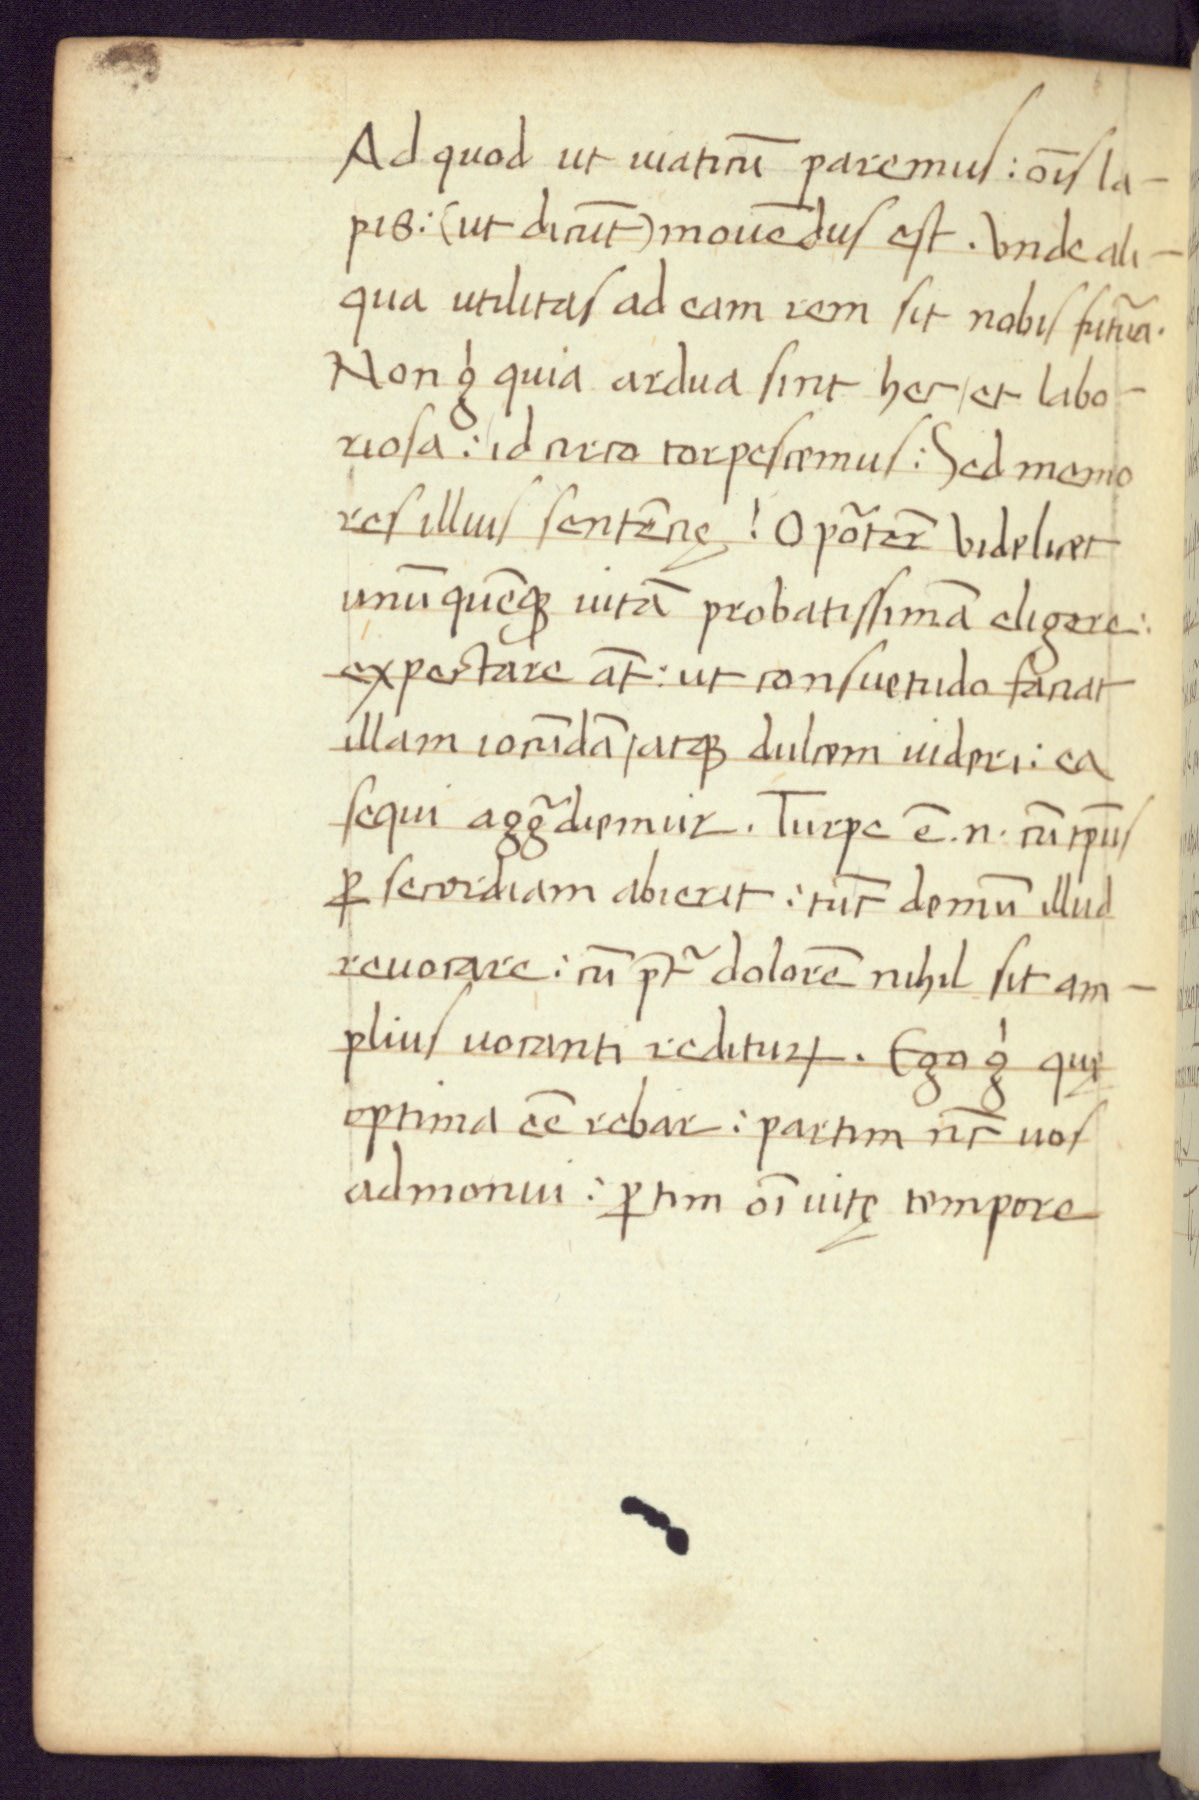 Ad quod ut uiaticū paremus: oı̄s la-
pis: (ut dicūt) mouēdus est. Vnde ali-
qua utilitas ad eam rem sit nobis futũa.
Non gͥ quia ardua sint hec / et labo-
riosa: id circo torpescemus: Sed memo
res illius sentētię! Opõterē Videlicet
unūquēqꝫ uitā probatissimā eligere:
expectare at̄: ut consuetudo faciat
illam iocūdā / atqꝫ dulcem uideri: ea
sequi aggr̃diemur. Turpe ē. n. cū tp̄us
ꝑ secordiam abierit: tūc demū illud
reuocare: cū p̄t̃ dolorē nihil sit am-
plius uocanti rediturꝝ. Ego gͥ quę
optima eē rebar: partim nūc uos
admonui: ꝑtim oı̄ uitę tempore